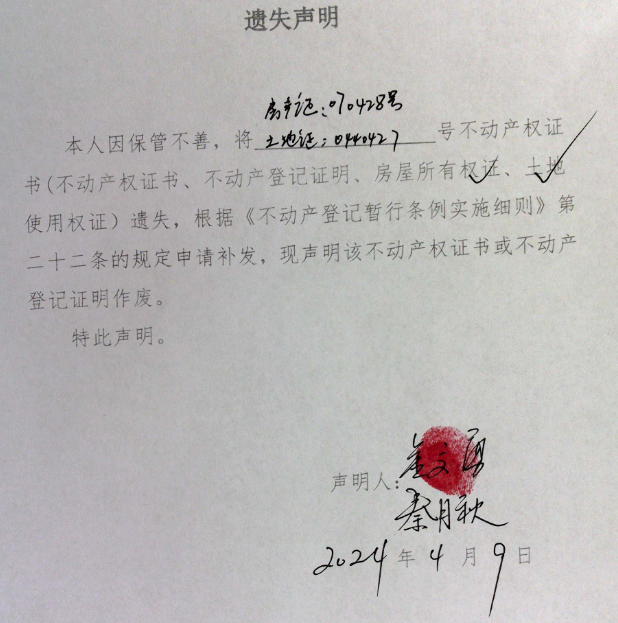 遗失声明
房产证:070428号
本人因保管不善，将土地证:0440427号不动产权证
书(不动产权证书、不动产登记证明、房屋所有权证、土地
使用权证）遗失，根据《不动产登记暂行条例实施细则》第
二十二条的规定申请补发，现声明该不动产权证书或不动产
登记证明作废。
特此声明。
声明人:崔文勇
秦月秋
2024年4月9日